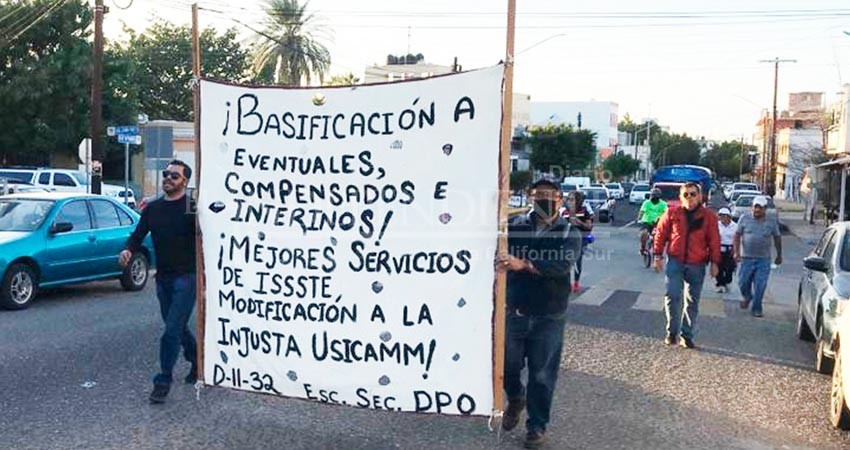 ¡BASIFICACIÓN A
EVENTUALES,
COMPENSADOS E
INTERINOS!
¡MEJORES SERVICIOS
DE ISSSTE,
MODIFICACIÓN A LA
INJUSTA USICAMM!
D-II-32 ESC. SEC. DPO